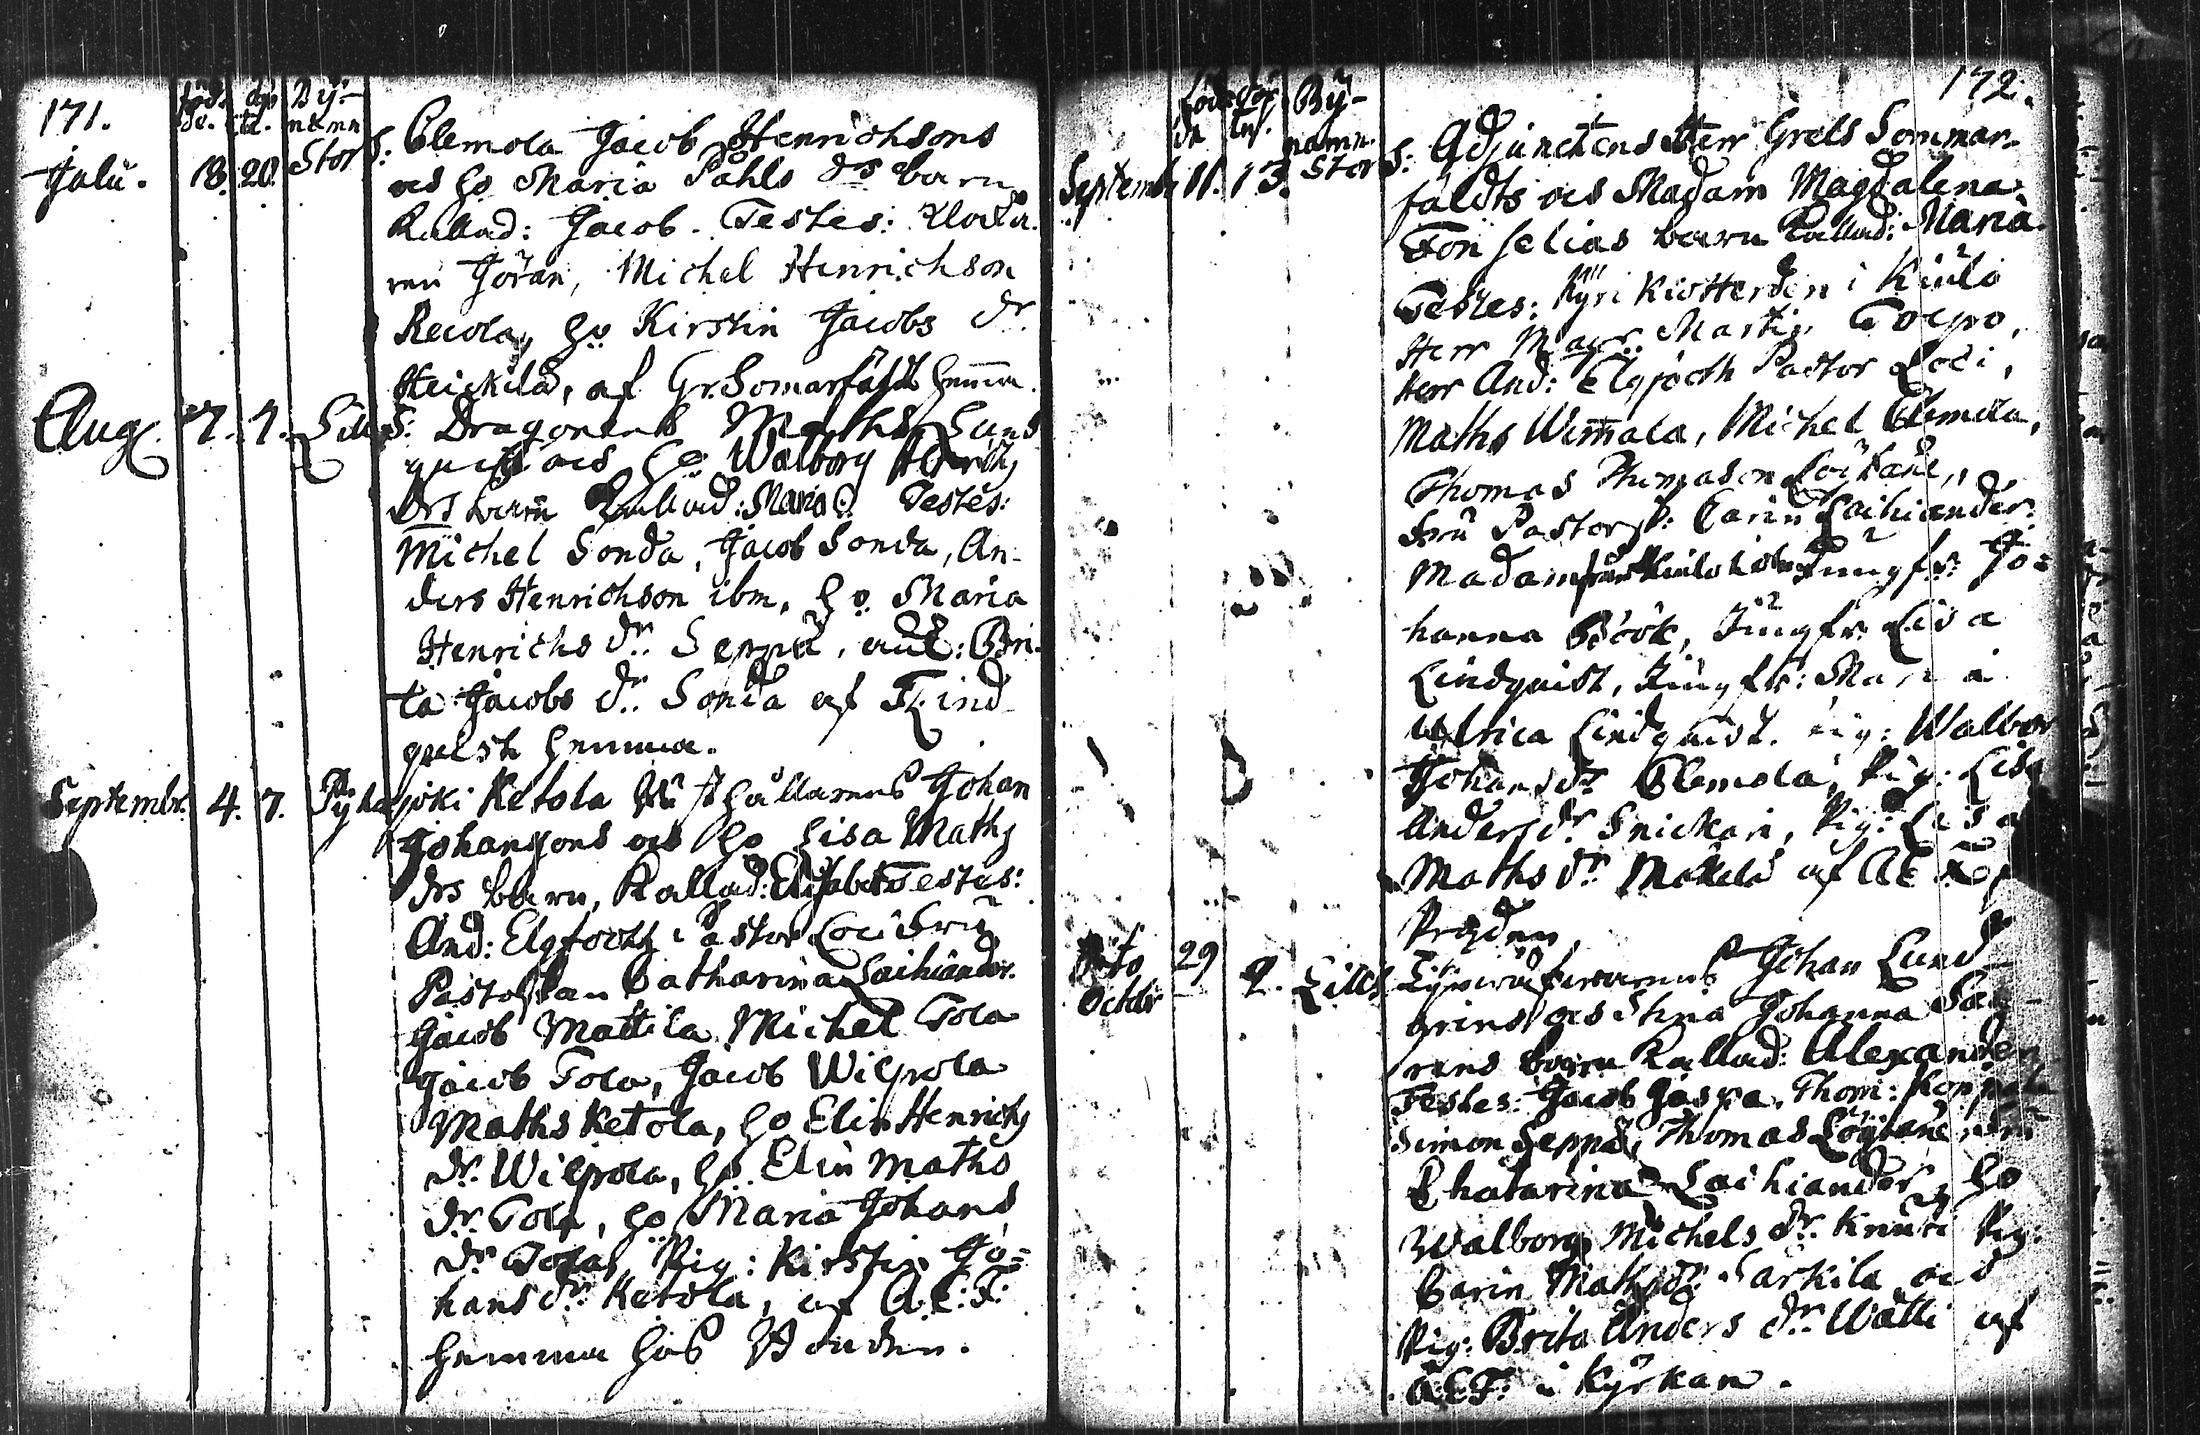 171.
föd. döp By-
de. te. namn
Julii. 18. 20. Stor S: Clemola Jacob Henrichsons
och ho Maria Påhls drs barn
Kallad: Jacob. Testes: Klocka-
ren Jöran, Michel Henrichson
Recola, ho Kirstin Jacobs dr
Heickilä, af Gr. Somarfäldt hemma.
Aug. 7. 7. Lill S: Dragonens Maths Lind
quist och ho Walborg
drs barn Kallad: Maria. Testes:
Michel Sonda, Jacob Sonda, An-
ders Henrichson ibm, ho Maria
Henrichs dr Seppä, och: Bri-
ta Jacobs dr Sonda af Lind
quist hemma.
Septembr. 4. 7. Pyhä joki Ketola hållarens Johan
Johansons och ho Lisa Maths
drs barn, Kallad: Elisabet Testes:
And: Elgfooth Pastor Loci Fru
Pastorskan Catharina Laihiander.
Jacob Mattila Michel Tola
Jacob Tola, Jacob Wilpola
Maths Ketola, ho Elin Henrichs
dr Wilpola, ho Elin Maths
dr Tola, ho Maria Johans
dr Tola, Pig: Kirstin Jo=
hans dr Ketola, af A: E: F:
hemma hos Bonden.
172.
föd döp By-
de namn
Septembr 11. 13. Stor S: Adjunctens Herr Grels Sommar-
fäldts och Madam Magdalena
Fonselias barn Kallad: Maria.
Testes: i Kiulo
Herr Magr. Martin Tolpo,
Herr And: Elgfooth Pastor Loci,
Maths Wimala, Michel Clemola,
Thomas Thomason Löytäne,
Fru Pastorsk: Carin Laihiander.
Madam Jungfr: Jo=
hanna Böök, Jungfr: Lisa
Lindquist, Jungfr: Maria
Ulrica Lindquist. Pig: Walbor
Johans dr Clemola, Pig: Lisa
Anders dr Snickari, Pig: Lisa
Maths dr Mäkelä af
29
Octobr 2. Lill S. Johan Lund
grens och Stina Johanna
rens barn Kallad: Alexander
Testes: Jacob Jaspa, Thom:
Simon Seppä, Thomas Löytäne
Chatarina Laihiander, ho
Walborg Michels dr Knuti Pig:
Carin Maths dr Särkilä och
Pig: Brita Anders dr Wätti af
A: E: F: i Kyrkan.